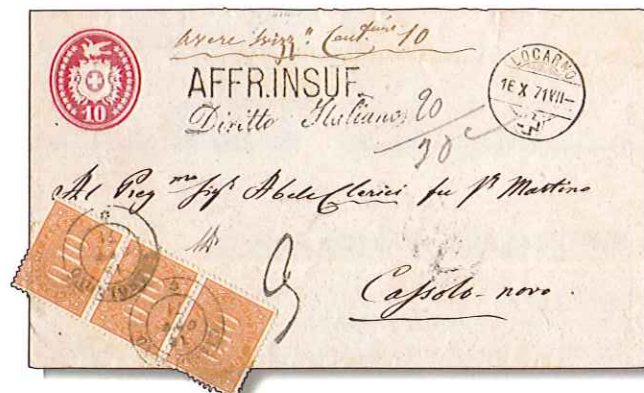 Avere Svizz.º Cent.
10
AFFR.INSUF.
Diritto Italiano 20
30 c
LOCARNO
16 X 71 VII–
10
Al Preg.mo Sig.r Abele Clerici fu
Martino
Cassolo-novo.
10
10
10